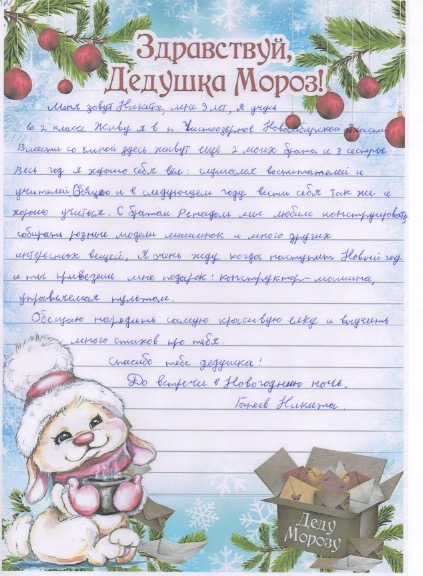 Здравствуй,
Дедушка Мороз!
Меня зовут Никита, мне 9 лет, я учусь
во 2 классе. Живу я в п. Чистоозёрное Новосибирской области.
Вместе со мной здесь живут ещё 2 моих брата и 3 сестры.
Весь год я хорошо себя вёл: слушался воспитателей и
учителей. Обещаю и в следующем году вести себя так же и
хорошо учиться. С братом мы любим конструировать,
собирать разные модели машинок и много других
интересных вещей. Я очень жду когда наступит Новый год
и ты привезешь мне подарок: конструктор-машина,
управляемая пультом.
Обещаю нарядить самую красивую елку и выучить
много стихов про тебя.
Спасибо тебе дедушка!
До встречи в Новогоднюю ночь.
Никита.
Деду
Морозу